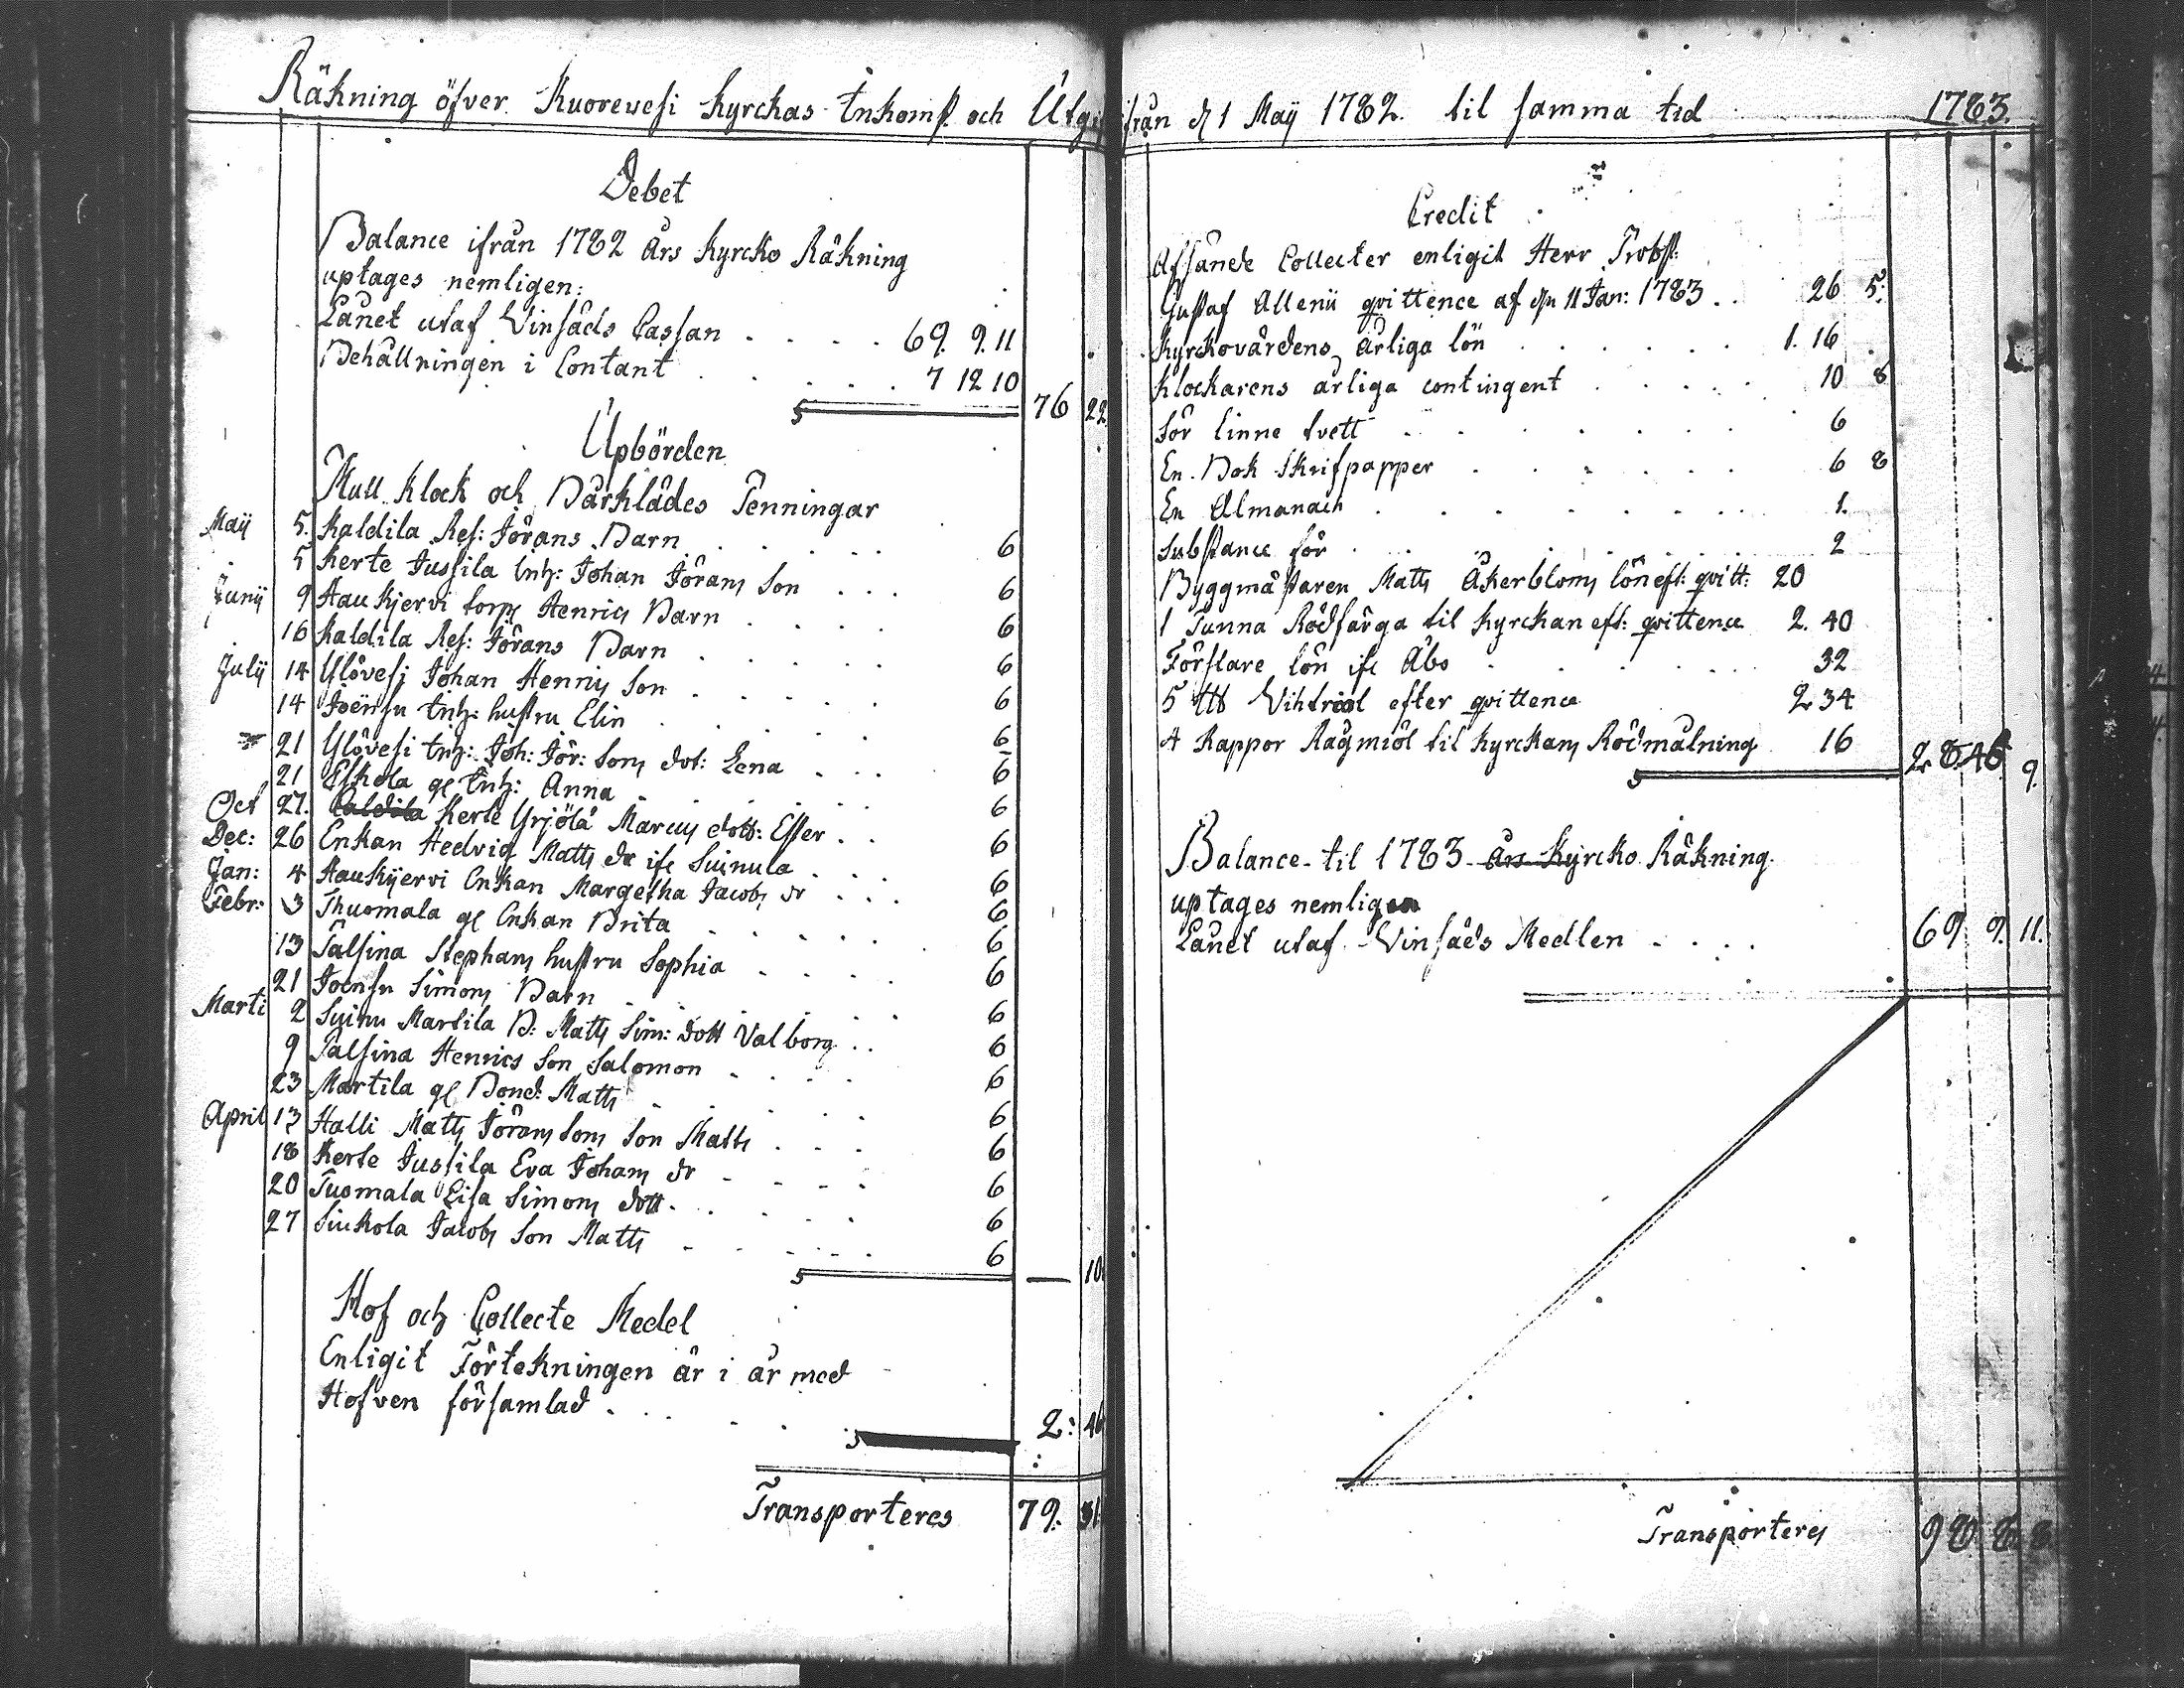 Räkning öfver Kuorevesi Kyrckas Inkomst och Utg
Debet
Balance ifrån 1782 Års Kyrcko Räkning
uptages nemligen:
Lånet utaf Vinsäds Cassan . . . . 69. 9. 11
Behållningen i Contant . . . . 7 12 10
76 22
Upbörden
Mull Klock och Bårklädes Penningar
Maij 5. Kaldila Res: Jörans Barn . . . . 6
5 Kerte Jussila Inh: Johan Jörans Son . . . 6
Junij 9 Haukjervi torp Henrics Barn . . . . 6
16 Kaldila Res: Jörans Barn . . . . 6
Julij 14 Ylövesi Johan Henrics Son . . . . 6
14 Joënsu Inh: hustru Elin . . . . 6
21 Ylövesi Inh: Joh: Jör: Sons dot: Lena . . . 6
21 Eskola gl Inh: Anna . . . . 6
Oct 27. Kerte Yrjölä Marcus dott: Ester . . 6
Dec: 26 Enkan Hedvig Matts dr ifr Suinula . . . 6
Jan: 4 Haukijervi Enkan Margetha Jacobs dr . . . 6
Febr: 3 Thuomala gl Enkan Brita . . . . 6
13 Talsina Stephans hustru Sophia . . . . 6
21 Joensu Simons Barn . . . . 6
Marti 2 Suinu Martila B: Matts Sim: dott Valborg . . 6
9 Talsina Henrics Son Salomon . . . . 6
23 Martila gl Bond: Matts . . . . 6
April 13 Halli Matts Jörans Sons Son Matts . . . 6
18 Kerte Jussila Eva Johans dr . . . . 6
20 Tuomala Lisa Simons dott. . . . 6
27 Siukola Jacobs Son Matts . . . . 6
— 10
Hof och Collecte Medel
Enligit Förtekningen är i år med
Hofven församlad . . . . 2: 46
Transporteres 79. 31
ifrån d 1 Maij 1782. til samma tid 1783.
Credit
Afsände Collecter enligit Herr Probst:
Gustaf Allenii qvittence af den 11 Jan: 1783 . . 26 5.
Kyrkovärdens årliga lön . . . . 1. 16
Klockarens årliga contingent . . . . 10 8
för linne tvett . . . . 6
En Bok Skrifpapper . . . . 6 8
En Almanach . . . . 1.
Substance för . . . . 2
Byggmästaren Matts Åkerbloms lön eft: qvitt: 20
1 Tunna Rödfärga til Kyrckan eft: qvittence 2. 40
Förslare lön ifr Åbo . . . . 32
5 ℔ Vihtriol efter qvittence 2 34
4 Kappor Rågmiöl til Kyrckans Rödmålning 16
28. 46 9.
Balance til 1783 års Kyrcko Räkning
uptages nemligen
Lånet utaf Vinsäds Medlen . . . . 69. 9. 11.
Transporteres 98. 8. 8.